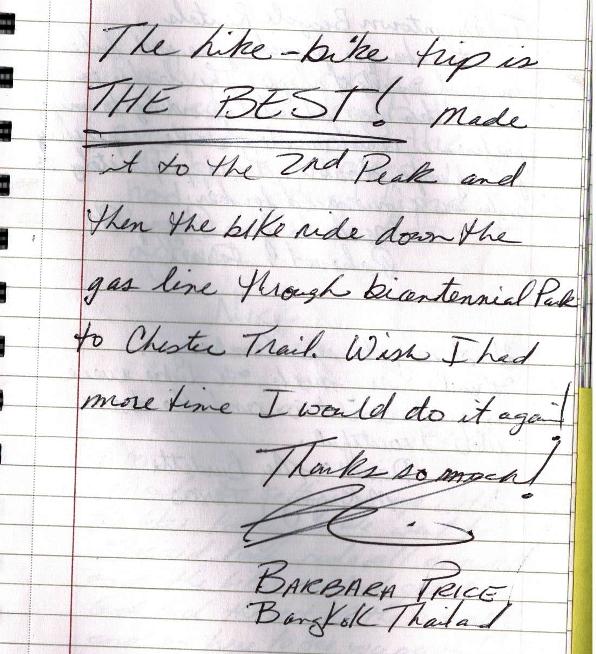 The hike-bike trip is
THE BEST! Made
it to the 2nd Peak and
then the bike ride down the
gas line through bicentennial Park
to Chester Trail. Wish I had
more time I would do it again!
Thanks so much!
BARBARA PRICE
Bangkok Thailad